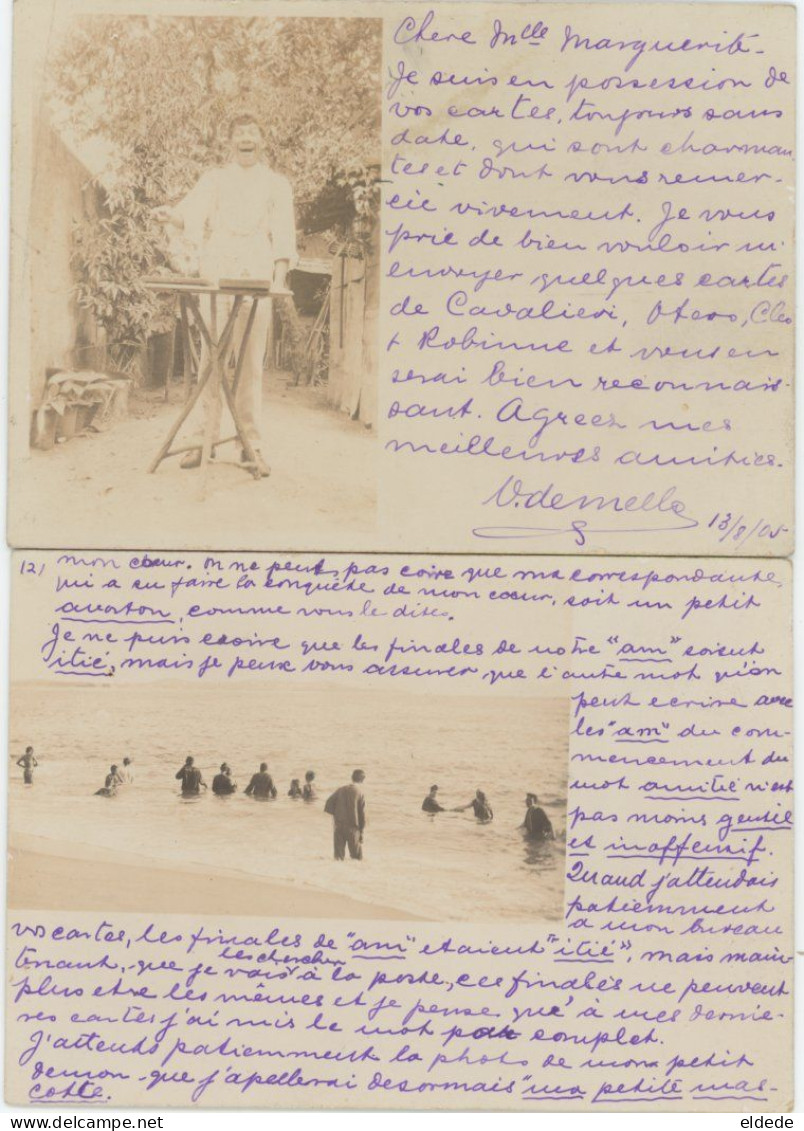 Chere Mlle Marguerite-
Je suis en possession de
vos cartes, toujours sans
date, qui sont charman
tes et dont vous remer-
cie vivement. Je vous
prie de bien vouloir m'
envoyer quelques cartes
de Cavalieri, Otero, Cleo
+ Robinne et vous en
serai bien reconnais-
sant. Agreez mes
meilleures amities.
V. de Mello
13/8/05
12) mon coeur. On ne peut pas coire que ma correspondante,
qui a su faire la conquête de mon coeur, soit un petit
avorton, comme vous le dites.
Je ne puis croire que les finales de notre "am" soient
itié, mais je peux vous assurer, que l'autre mot qu'on
peut ecrire avec
les "am" du com-
mencement du
mot amitié n'est
pas moins gentil
et inoffensif.
Quand j'attendais
patiemment
a mon bureau
vos cartes, les finales de "am" etaient "itié", mais main
tenant, que je vais les chercher à la poste, ces finales ne peuvent
plus etre les mêmes et je pense que à mes derniè-
res cartes j'ai mis le mot complet.
J'attends patiemment la photo de mon petit
demon que j'apellerai desormais "ma petite mas-
cotte.
eldede